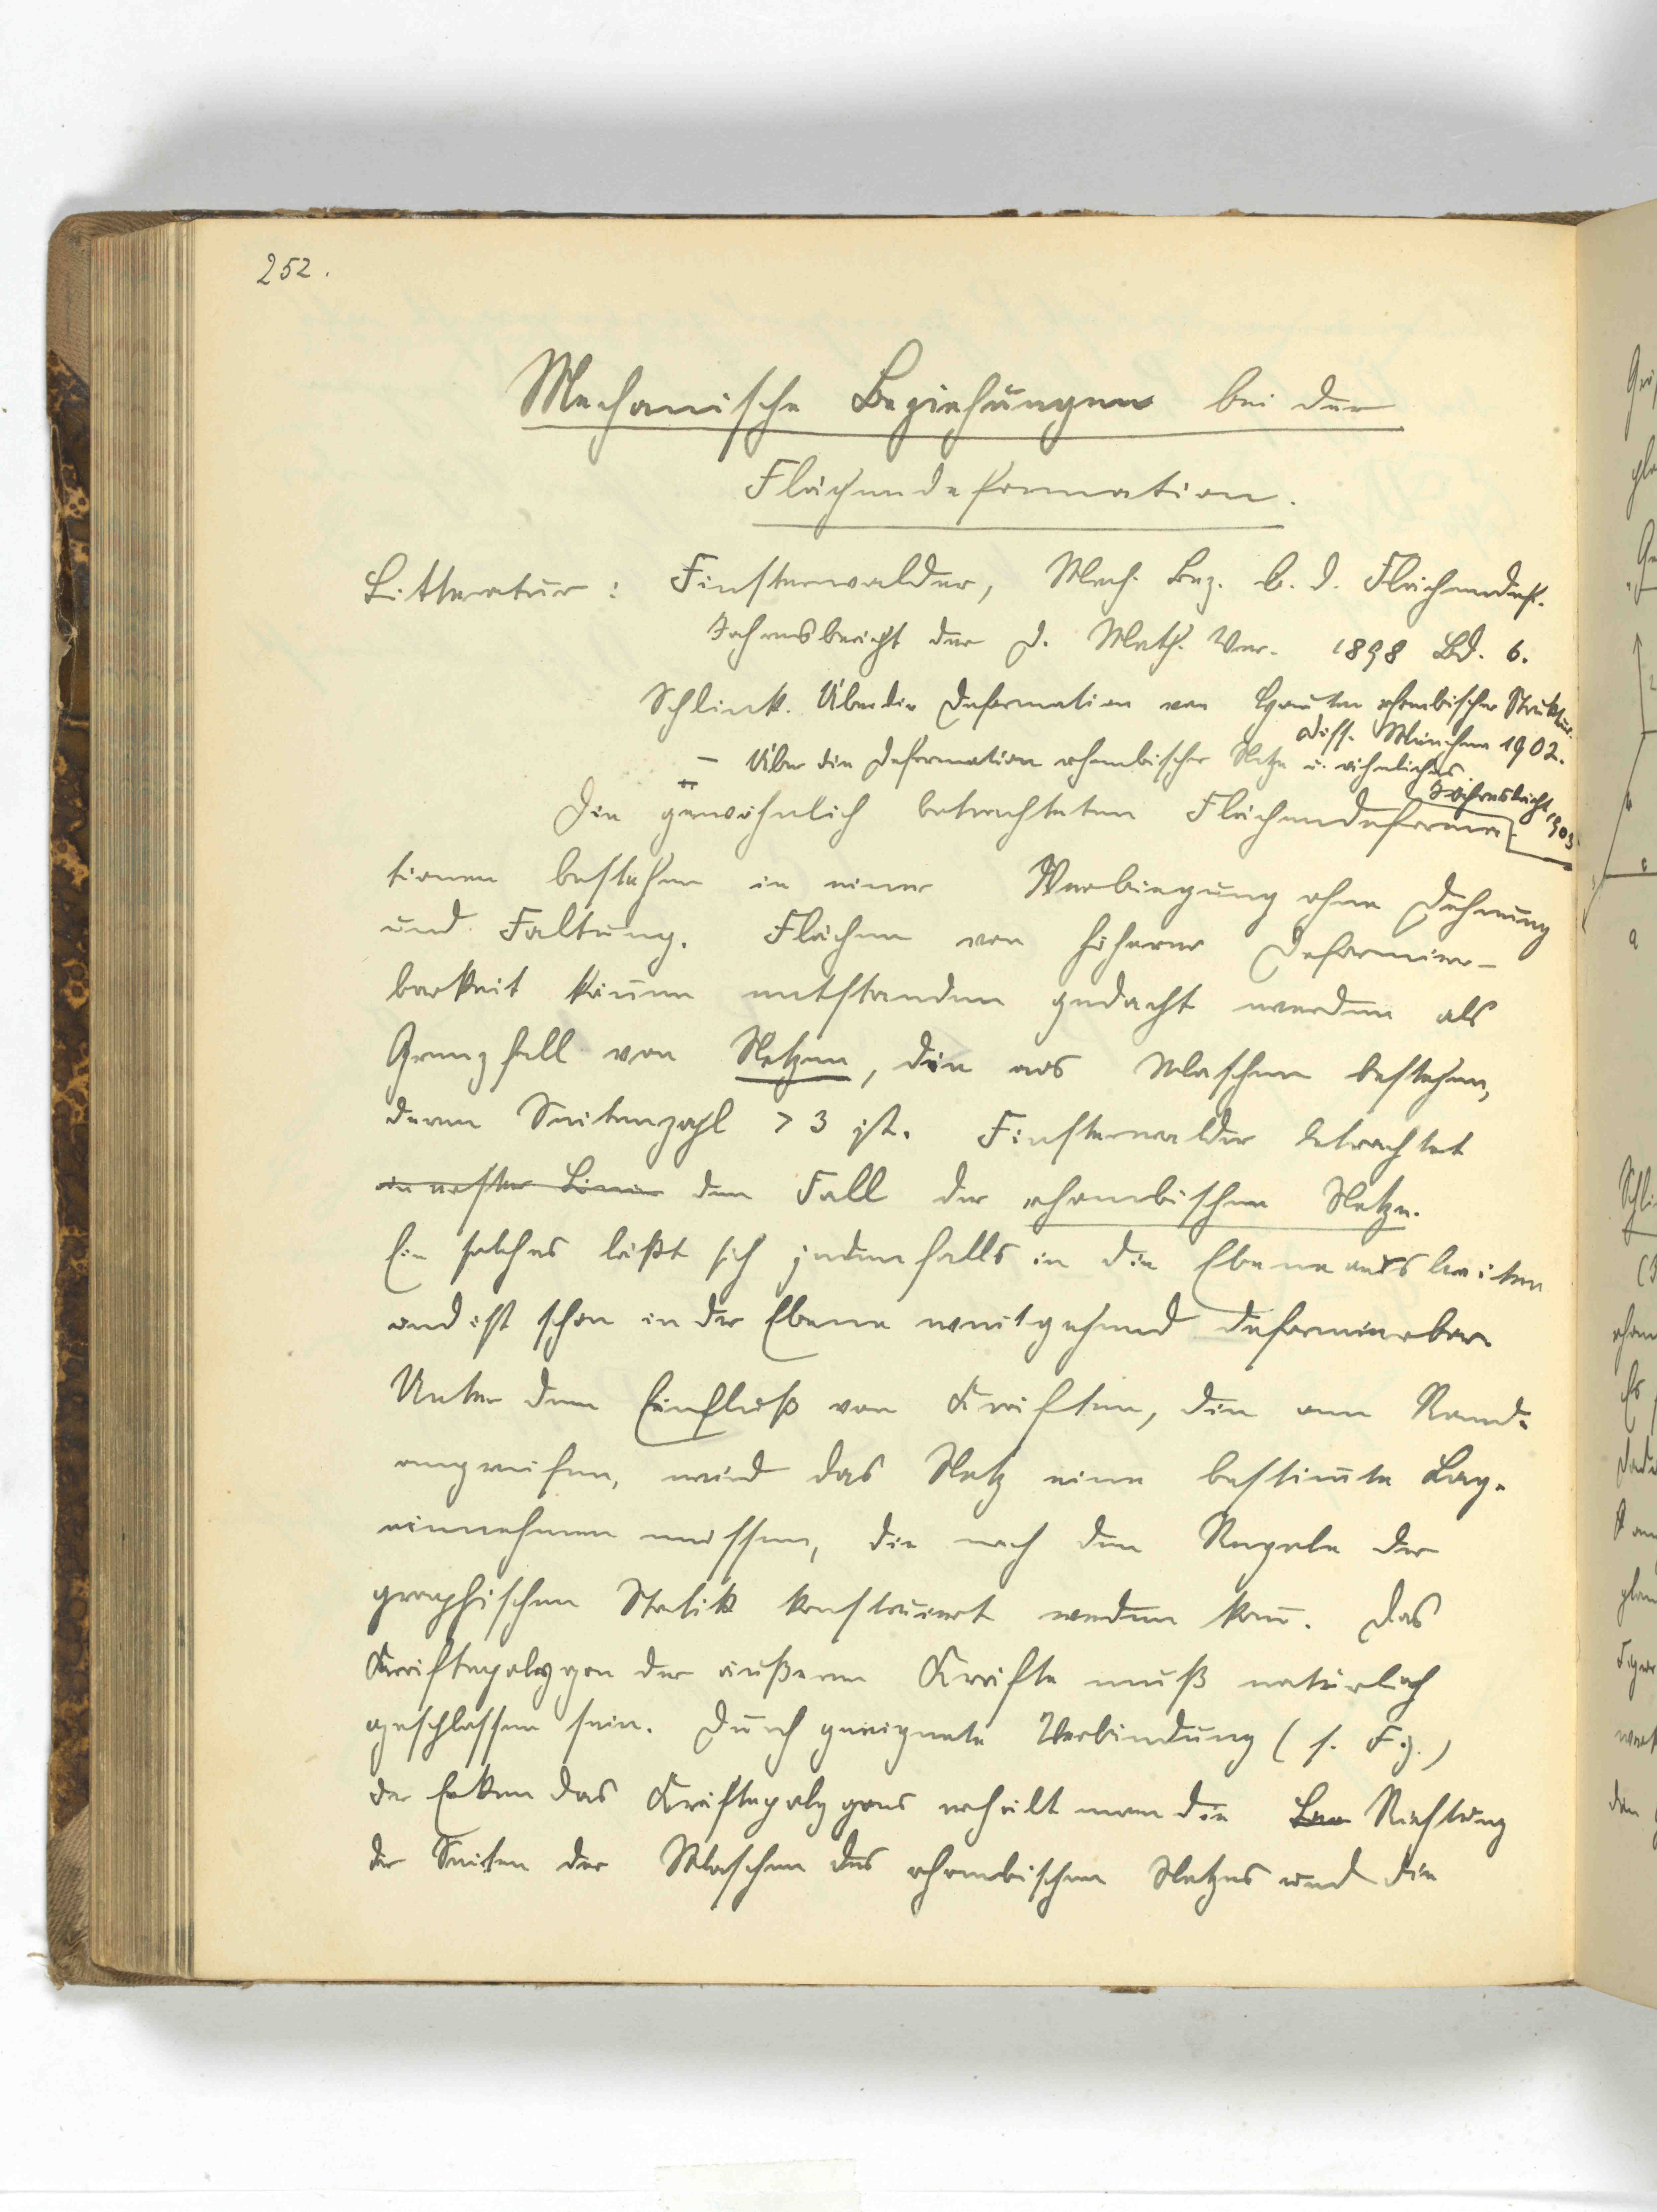 252.
Mechanische Beziehungen bei der
Flächendeformation.
Litteratur: Finsterwalder, Mech. Bez. b. d. Flächendef.
Jahresbericht der D. Math. Ver. 1898 Bd. 6.
Schlink. Über die Deformation von Häuten rhombischer Struktur.
Diss. München 1902.
– Über die Deformation rhombischer Netze u. ähnliches.
Jahresbericht 1903
Die gewöhnlich betrachteten Flächendeforma-
tionen bestehen in einer Verbiegung ohne Dehnung
und Faltung. Flächen von höherer Deformier-
barkeit kön̅en entstanden gedacht werden als
Grenzfall von Netzen, die aus Maschen bestehen,
deren Seitenzahl > 3 ist. Finsterwalder betrachtet
in erster Linie den Fall der rhombischen Netze.
Ein solches läßt sich jedenfalls in die Ebene ausbreiten
und ist schon in der Ebene weitgehend deformierbar.
Unter dem Einfluß von Kräften, die am Rande
angreifen, wird das Netz eine bestim̅te Lage
einnehmen müssen, die nach den Regeln der
graphischen Statik konstruiert werden kan̅. Das
Kräftepolygon der äußeren Kräfte muß natürlich
geschlossen sein. Durch geeignete Verbindung (s. Fig.)
der Ecken das Kräftepolygons erhält man die La Richtung
der Seiten der Maschen des rhombischen Netzes und die